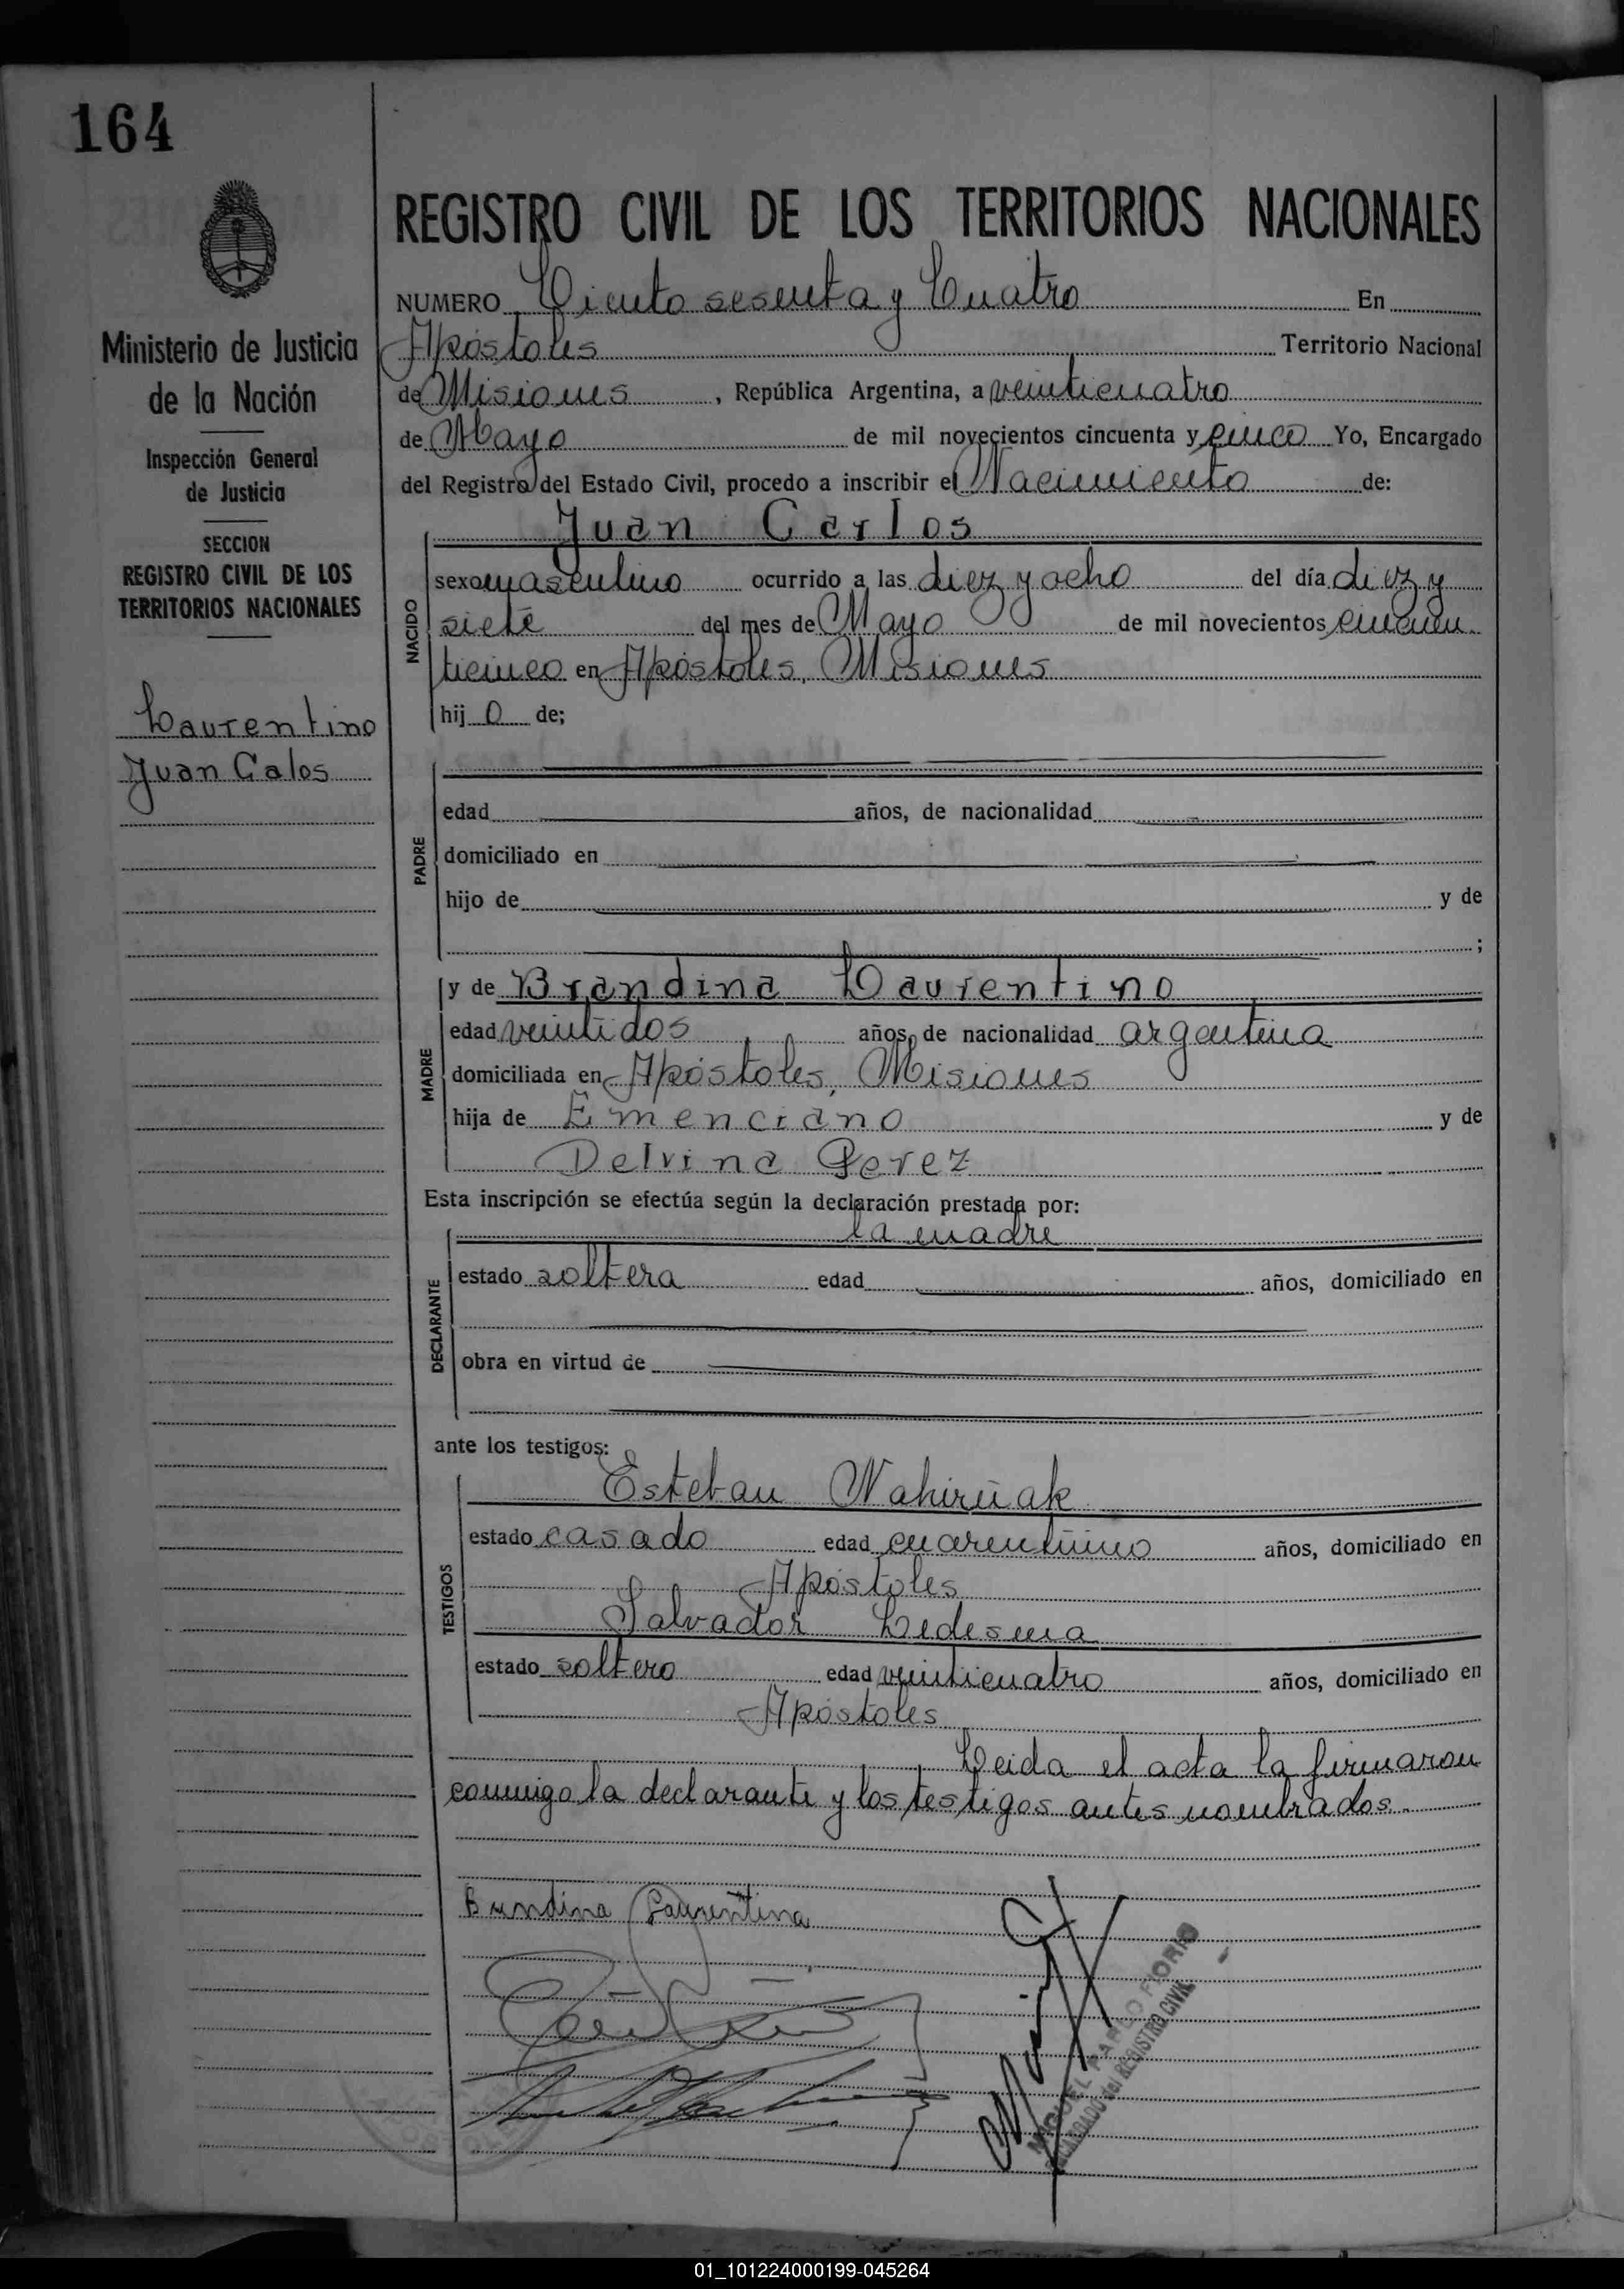 164
REGISTRO CIVIL DE LOS TERRITORIOS NACIONALES
Ministerio de Justicia
de la Nación
Inspección General
de Justicia
SECCION
REGISTRO CIVIL DE LOS
TERRITORIOS NACIONALES
Laurentino
Juan Calos
NUMERO Ciento sesenta y Cuatro En
Apóstoles Territorio Nacional
de Misiones, República Argentina, a veinticuatro
de Mayo de mil novecientos cincuenta y cinco Yo, Encargado
del Registro del Estado Civil, procedo a inscribir el Nacimiento de:
NACIDO
Juan Carlos
sexo masculino ocurrido a las diez y ocho del día diez y
siete del mes de Mayo de mil novecientos cincuen
ticinco en Apóstoles, Misiones
hij o de;
PADRE
edad años, de nacionalidad
domiciliado en
hijo de y de
;
MADRE
y de Brandina Laurentino
edad veintidos años, de nacionalidad argentina
domiciliada en Apóstoles, Misiones
hija de Emenciano y de
Delvina Perez
Esta inscripción se efectúa según la declaración prestada por:
DECLARANTE
la madre
estado soltera edad años, domiciliado en
obra en virtud de
ante los testigos:
TESTIGOS
Esteban Nahirñak
estado casado edad cuarentiuno años, domiciliado en
Apóstoles
Salvador Ledesma
estado soltero edad veinticuatro años, domiciliado en
Apóstoles
Leida el acta la firmaron
conmigo la declarante y los testigos antes nombrados.
Brandina Laurentina
MIGUEL PABLO FIORIO
ENCARGADO del REGISTRO CIVIL
01_101224000199-045264